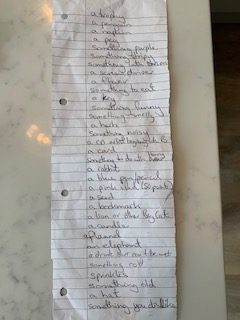 a trophy
a penguin
a napkin
a peg
something purple
something stripy
something with buttons
a screwdriver
a flower
something to eat
a key
something funny
something smelly
a herb
something noisy
a CD artist beginning with B
a card
something to do with
a rabbit
a blue pen/pencil
a pink (50 points)
a seed
a bookmark
a lion or other big cat
a candle
a
an elephant
a drink but can't be wet
something round
sprinkles
something old
a hat
something you dislike